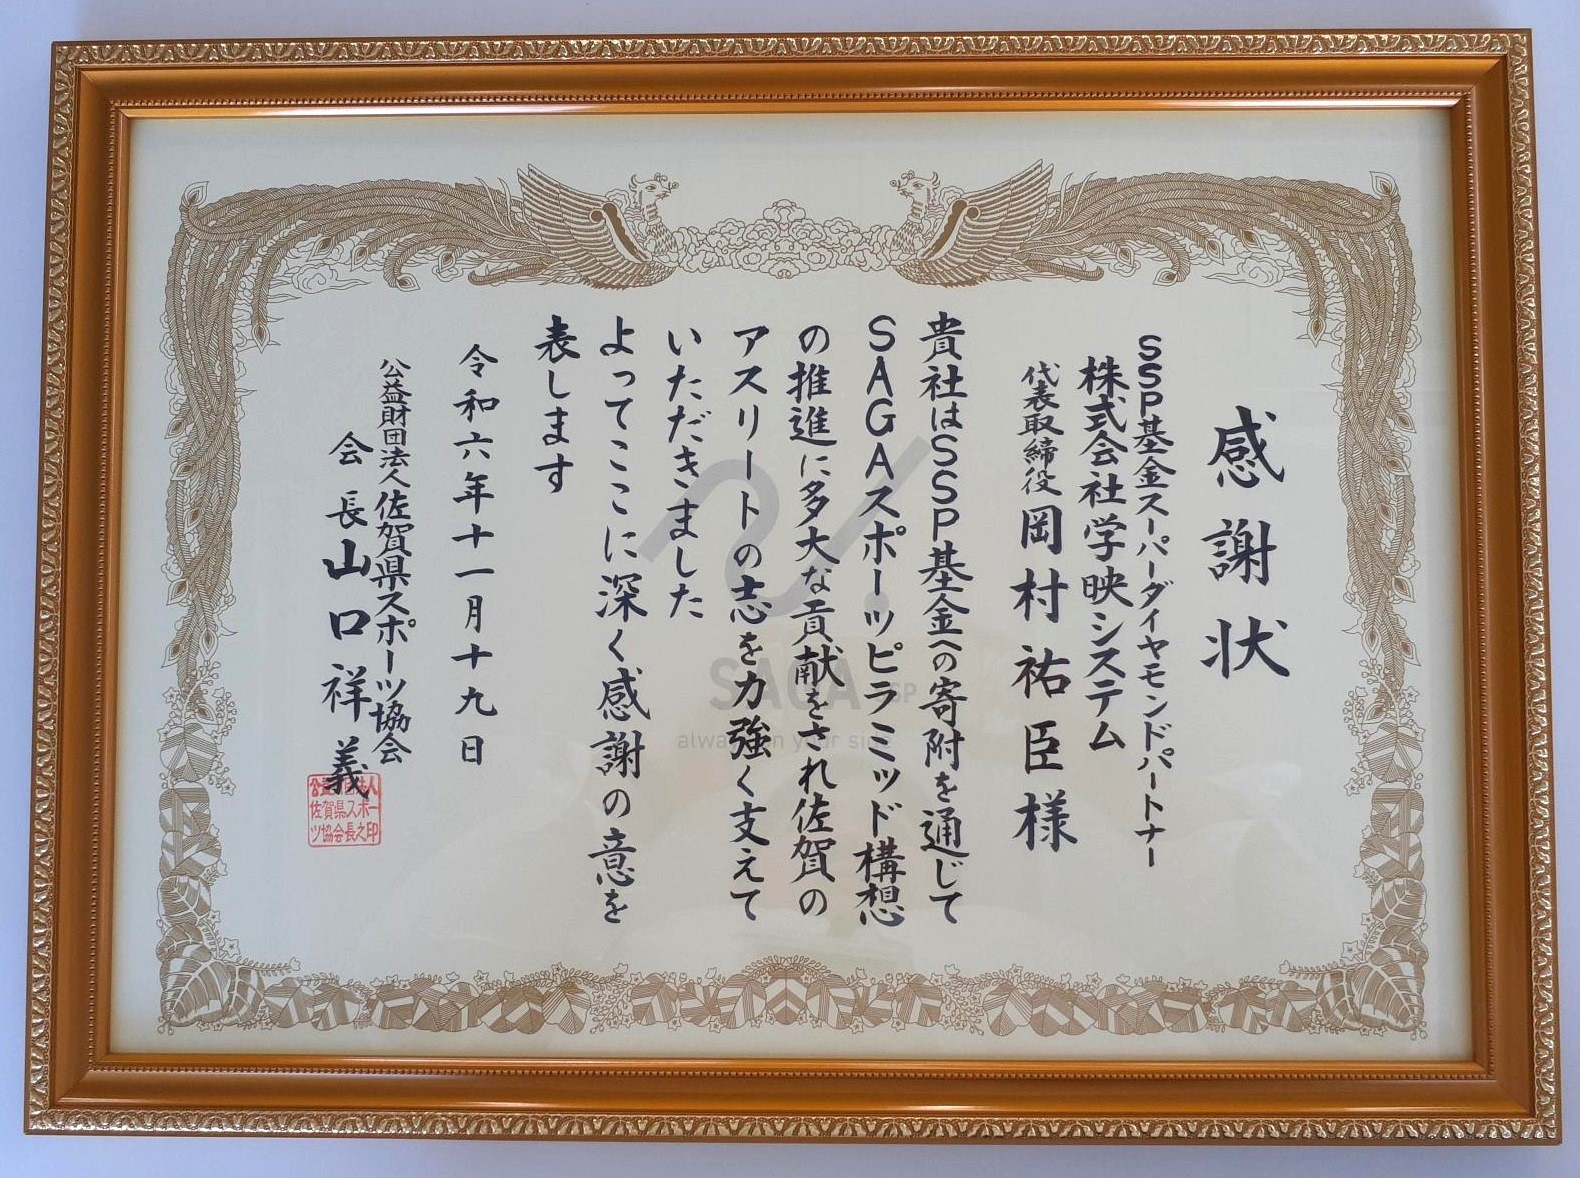 感謝状
SSP基金スーパーダイヤモンドパートナー
株式会社学映システム
代表取締役 岡村祐臣様
貴社はSSP基金への寄附を通じて
SAGAスポーツピラミッド構想
の推進に多大な貢献をされ佐賀の
アスリートの志を力強く支えて
いただきました
よってここに深く感謝の意を
表します
令和六年十一月十九日
公益財団法人佐賀県スポーツ協会
会長 山口祥義
公益財団法人
佐賀県スポー
ツ協会長之印
SAGA SSP
always on your side